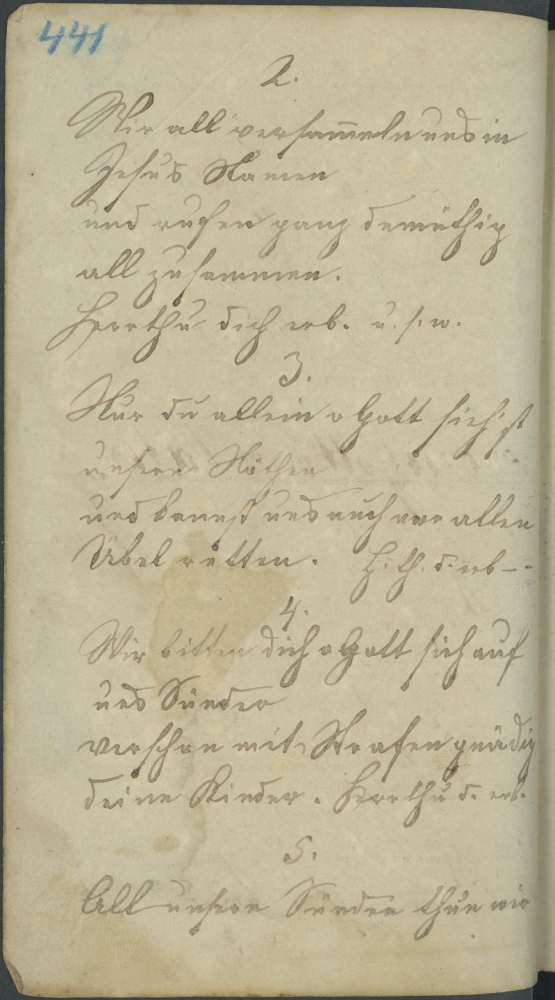 441
2.
Wir all versam̄eln uns in
Jesus Namen
und rufen ganz demüthig
all zusammen.
Herr thu dich erb. u. s. w.
3.
Nur du allein o Gott sieh'st
unsere Nöthen
und kannst uns auch von allen
Übel retten. H. th. d. erb – -
4.
Wir bitten dich o Gott sieh auf
uns Sünder
verschon mit Strafen gnädig
deine Kinder. Herr thu d. erb.
5.
All unsere Sünden thun wir